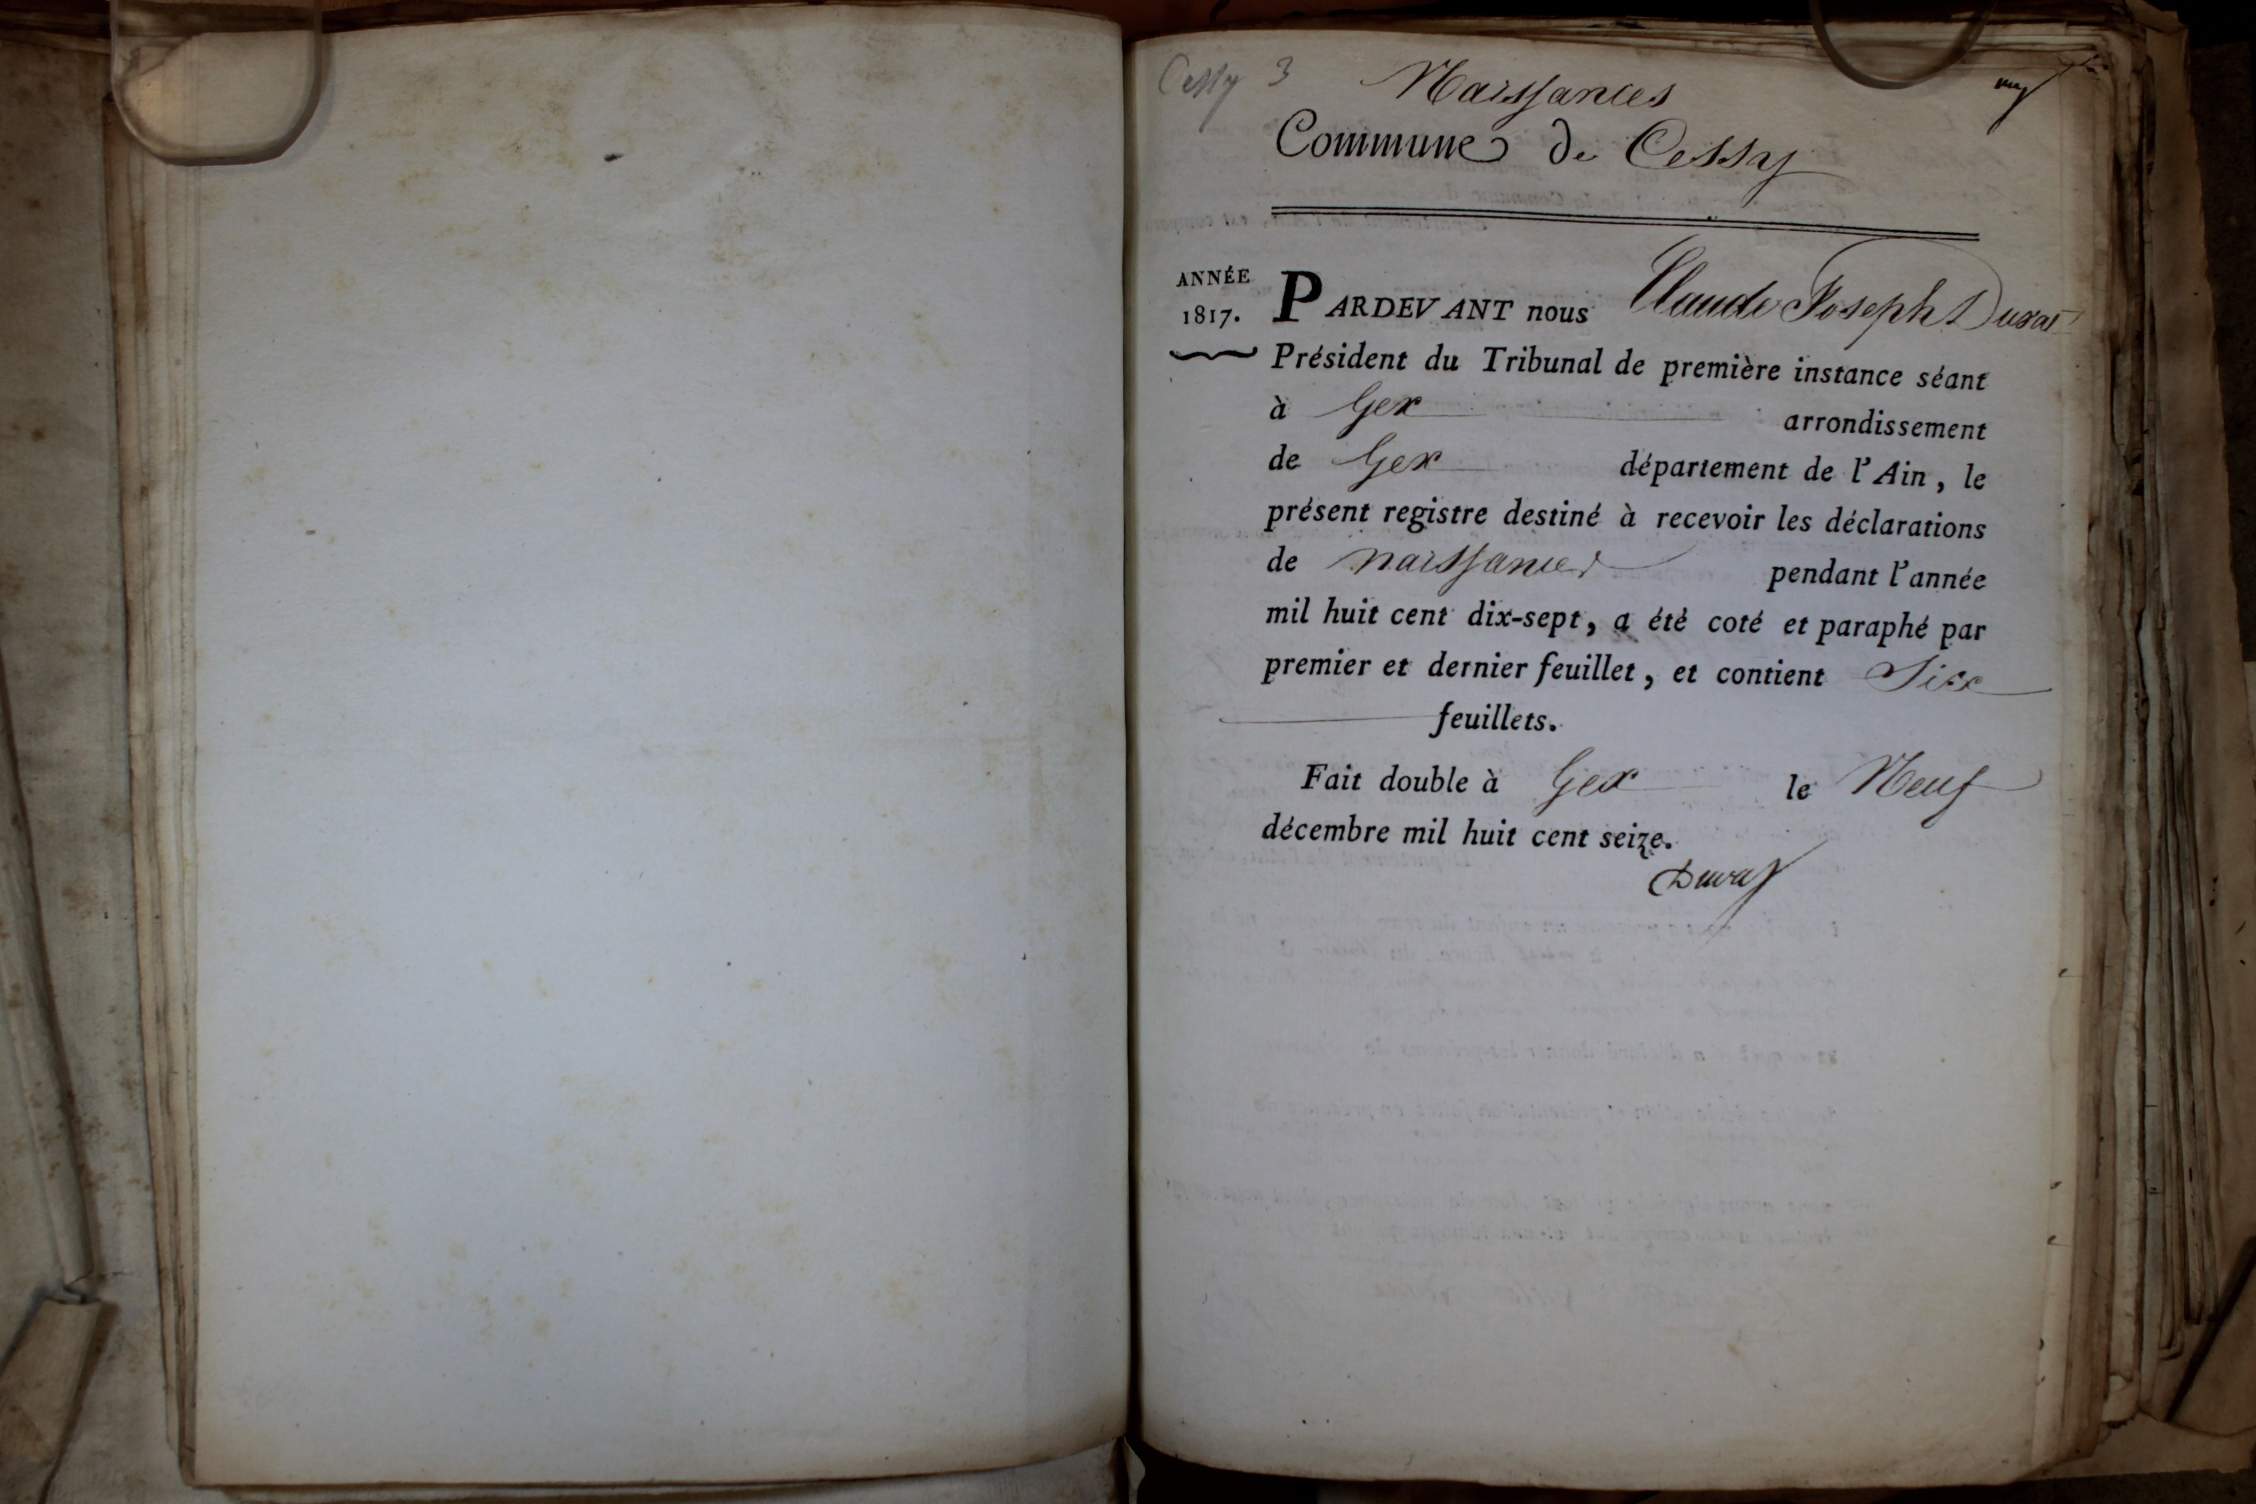 Cessy 3
Naissances
Commune de Cessy
ANNÉE
1817.
PARDEVANT nous Claude Joseph Duval
Président du Tribunal de première instance séant
à Gex arrondissement
de Gex département de l'Ain, le
présent registre destiné à recevoir les déclarations
de naissances pendant l'année
mil huit cent dix-sept, a été coté et paraphé par
premier et dernier feuillet, et contient Six
feuillets.
Fait double à Gex le Neuf
décembre mil huit cent seize.
Duval